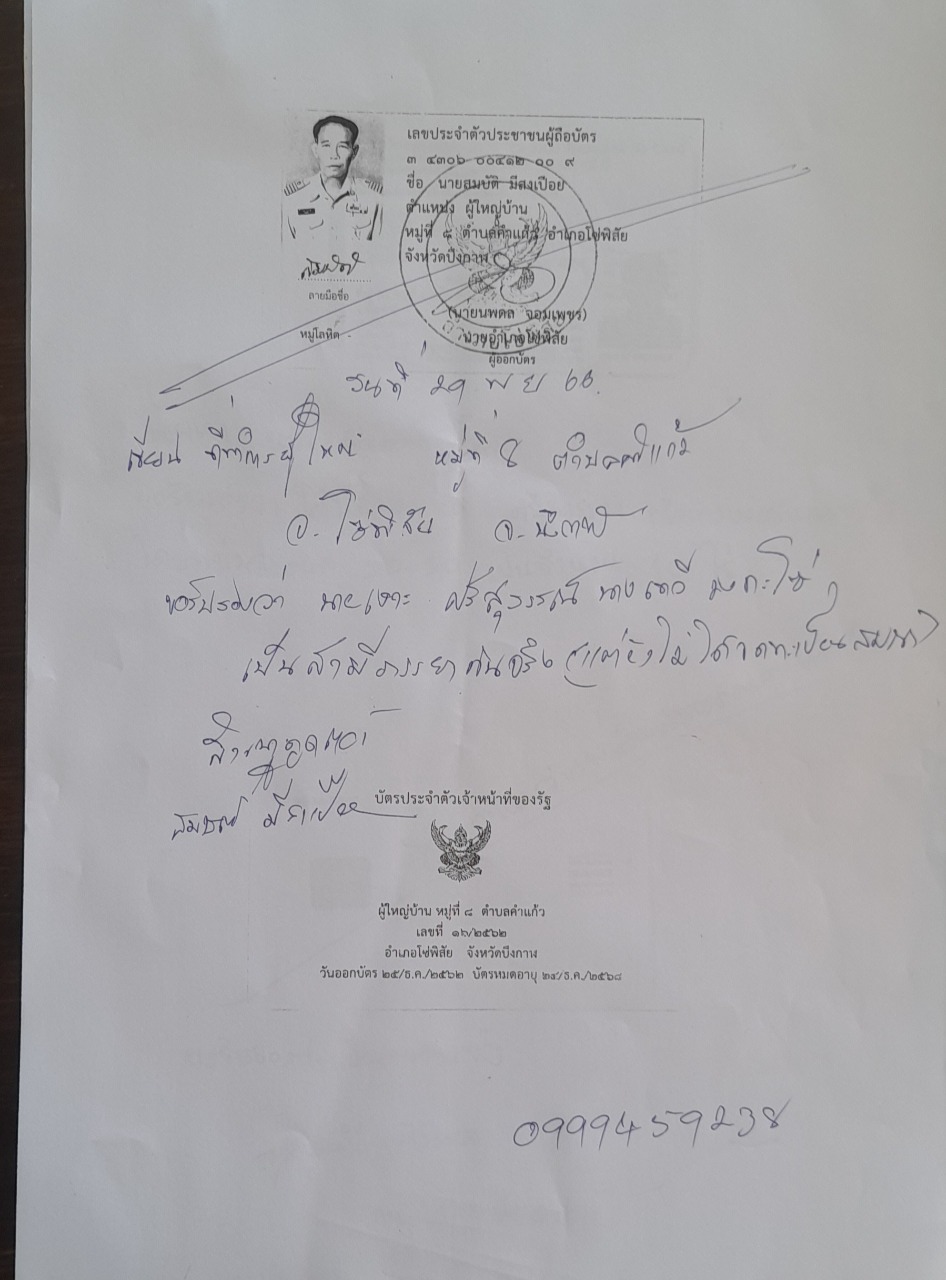 เลขประจำตัวประชาชนผู้ถือบัตร
๓ ๔๓๐๖ ๐๐๔๑๒ ๐๐ ๙
ชื่อ นายสมบัติ มีสงเปือย
ตำแหน่ง ผู้ใหญ่บ้าน
หมู่ที่ ๘ ตำบลคำแก้ว อำเภอโซ่พิสัย
จังหวัดบึงกาฬ
ลายมือชื่อ
(นายนพดล จอมเพชร)
หมู่โลหิต
นายอำเภอโซ่พิสัย
ผู้ออกบัตร
วันที่ 29 พย 66.
เขียน ที่ทำการผู้ใหญ่ หมู่ที่ 8 ตำบลคำแก้ว
อ. โซ่พิสัย จ. บึงกาฬ
ขอรับรองว่า นาย ศรีสุวรรณ์ นาง
เป็นสามีภรรยากันจริง (แต่ยังไม่ได้จดทะเบียนสมรส)
สำเนาถูกต้อง
บัตรประจำตัวเจ้าหน้าที่ของรัฐ
ผู้ใหญ่บ้าน หมู่ที่ ๘ ตำบลคำแก้ว
เลขที่ ๑๖๗/๒๕๖๒
อำเภอโซ่พิสัย จังหวัดบึงกาฬ
วันออกบัตร ๒๕/ธ.ค./๒๕๖๒ บัตรหมดอายุ ๒๔/ธ.ค./๒๕๖๘
0999459238